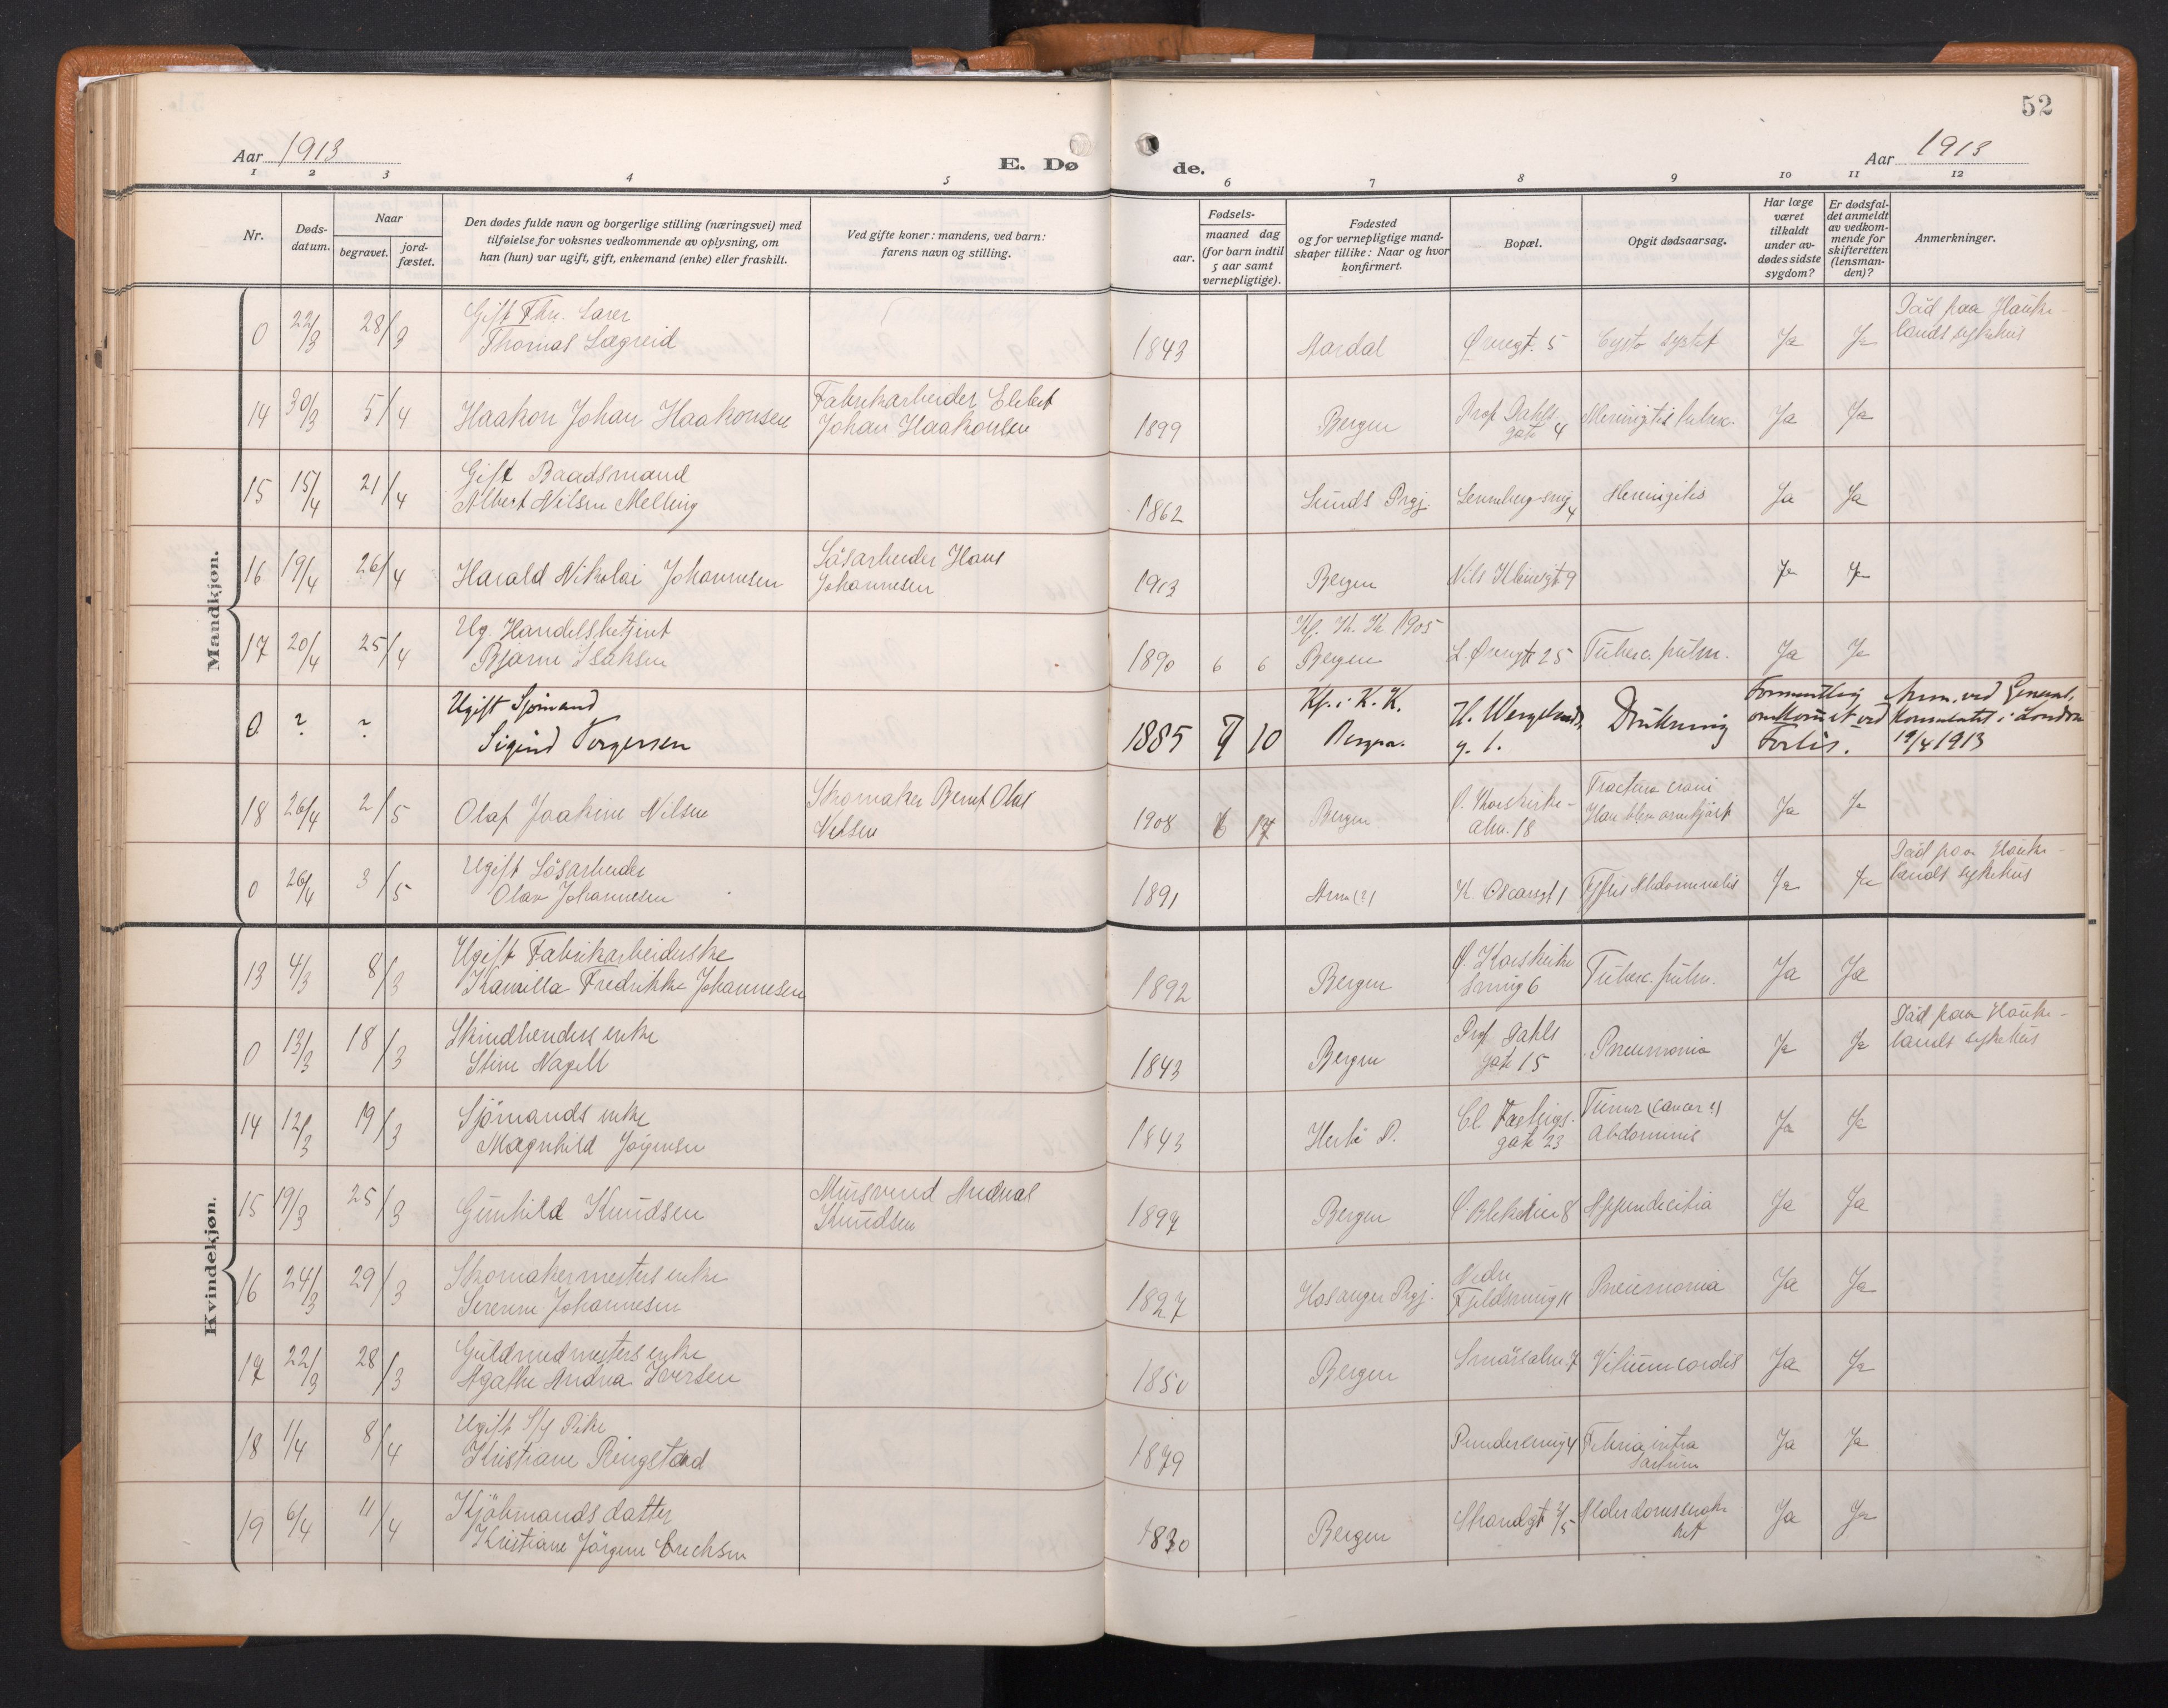 52
Aar 1913
E. Dø de.
Aar 1913
1 2 3 4 5 6 7 8 9 10 11 12
Nr.
Døds-
datum.
Naar
begravet.
jord-
fæstet.
Den dødes fulde navn og borgerlige stilling (næringsvei) med
tilføielse for voksnes vedkommende av oplysning, om
han (hun) var ugift, gift, enkemand (enke) eller fraskilt.
Ved gifte koner: mandens, ved barn:
farens navn og stilling.
Fødsels-
aar.
maaned dag
(for barn indtil
5 aar samt
vernepligtige).
Fødested
og for vernepligtige mand-
skaper tillike: Naar og hvor
konfirmert.
Bopæl.
Opgit dødsaarsag.
Har læge
været
tilkaldt
under av-
dødes sidste
sygdom?
Er dødsfal-
det anmeldt
av vedkom-
mende for
skifteretten
(lensman-
den)?
Anmerkninger.
Mandkjøn.
0 22/3 28/3
Gift Fhv.
Thomas Lægreid
1843 Aardal Øvregt. 5 Ja Ja
Död paa Hauke-
lands sykehus
14 30/3 5/4 Haakon Johan Haakonsen
Fabrikarbeider Elbert
Johan Haakonsen
1899 Bergen
Prof Dahls
gate 4
Meningitis tuberc. Ja Ja
15 15/4 21/4
Gift Baadsmand
Albert Nilsen Melling
1862 Sunds Prgj. 4 Meningitis Ja Ja
16 19/4 26/4 Harald Nikolai Johannesen
Lösarbeider Hans
Johannesen
1913 Bergen Nils Kleimsgt 9 Ja Ja
17 20/4 25/4
Ug. Handelsbetjent
Bjarne Isaksen
1890 6 6
Kf. K. K 1905
Bergen
L. Øvregt 25 Tuberc. pulm. Ja Ja
0 ? ?
Ugift Sjömand
Sigurd Torgersen
1885 7 10
Kf. i K. K.
Bergen.
H. Wergelands
g. 1.
Drukning
Formentlig
omkommet ved
Forlis.
Anm. ved General-
konsulatet i London
19/4 1913
18 26/4 2/5 Olaf Joakim Nilsen
Skomaker Bernt Olai
Nilsen
1908 6 17 Bergen
Ö. Korskirke-
alm. 18
Fractura cranii
Han blev overkjørt
Ja Ja
0 26/4 3/5
Ugift Lösarbeider
Olav Johannesen
1891 Arna (?) K. Oscarsgt 1 Tyfus Abdominalis Ja Ja
Död paa Hauke-
lands sykehus
Kvindekjøn.
13 4/3 8/3
Ugift Fabrikarbeiderske
Kamilla Fredrikke Johannesen
1892 Bergen
Ö. Korskirke
smug 6
Tuberc. pulm. Ja Ja
0 13/3 18/3
Skindbereders enke
Stine Nagell
1843 Bergen
Prof Dahls
gate 15
Pneumonia Ja Ja
Död paa Hauke-
lands sykehus
14 12/3 19/3
Sjömands enke
Magnhild Jörgensen
1843
Cl. Fastings-
gate 23
Tumor (cancer?)
Abdominis
Ja Ja
15 19/3 25/3 Gunhild Knudsen
Mursvend Andreas
Knudsen
1897 Bergen Ö. Blekevei 8 Appendicitis Ja Ja
16 24/3 29/3
Skomakermesters enke
Serenne Johannesen
1827 Hosanger Prgj.
Nedre
Fjeldsmug 11
Pneumonia Ja Ja
17 22/3 28/3
Guldsmedmesters enke
Agathe Andrea Iversen
1850 Bergen Smörsalm. 7 Vitium cordis Ja Ja
18 1/4 8/4
Ugift Pike
Kristiane Ringstad
1879 Pundersmug 4
Ja Ja
19 6/4 11/4
Kjöbmands datter
Kristiane Jörgine Erichsen
1830 Bergen Strandgt
Alderdomssvak-
het
Ja Ja